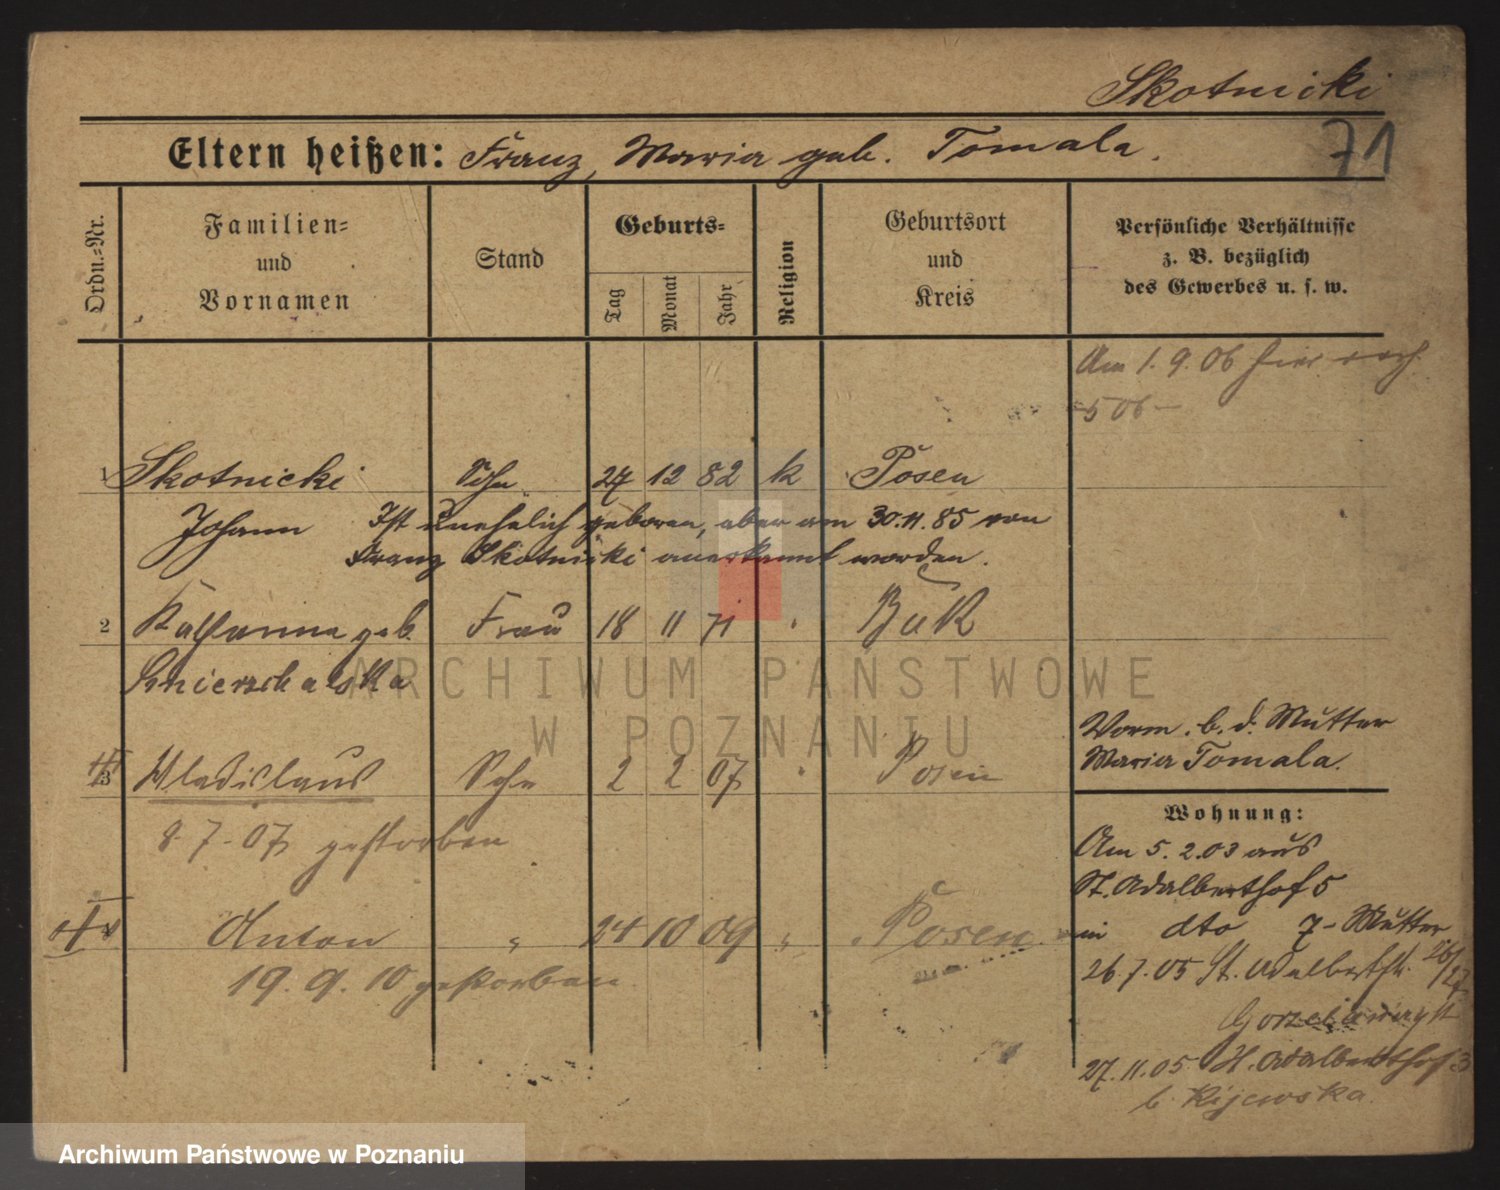 Skotnicki
71
Eltern heißen: Franz, Maria geb. Tomala.
Ordn.-Nr.
Familien-
und
Vornamen
Stand
Geburts-
Tag
Monat
Jahr
Religion
Geburtsort
und
Kreis
Persönliche Verhältnisse
z. B. bezüglich
des Gewerbes u. s. w.
Am 1. 9. 06 hier
1 Skotnicki Sohn 27 12 82 k Posen
Johann Ist unehelich geboren, aber am 30.11.85 von
Franz Skotnicki anerkannt worden.
2 Katharina geb. Frau 18 11 71 " Buk
Vorm. b. d. Mutter
Maria Tomala.
3 Wladislaus Sohn 2 2 07 " Posen
8. 7. 07 gestorben
Wohnung:
Am 5. 2. 03 aus
St. Adalberthof 5
in dto 7 - Mutter
Anton " 24 10 09 " Posen
19. 9. 10 gestorben
26. 7. 05 St. Adalbertstr. 26/27
27. 11. 05 St. Adalberthof 3
b. Kijewska
ARCHIWUM PAŃSTWOWE
W POZNANIU
Archiwum Państwowe w Poznaniu